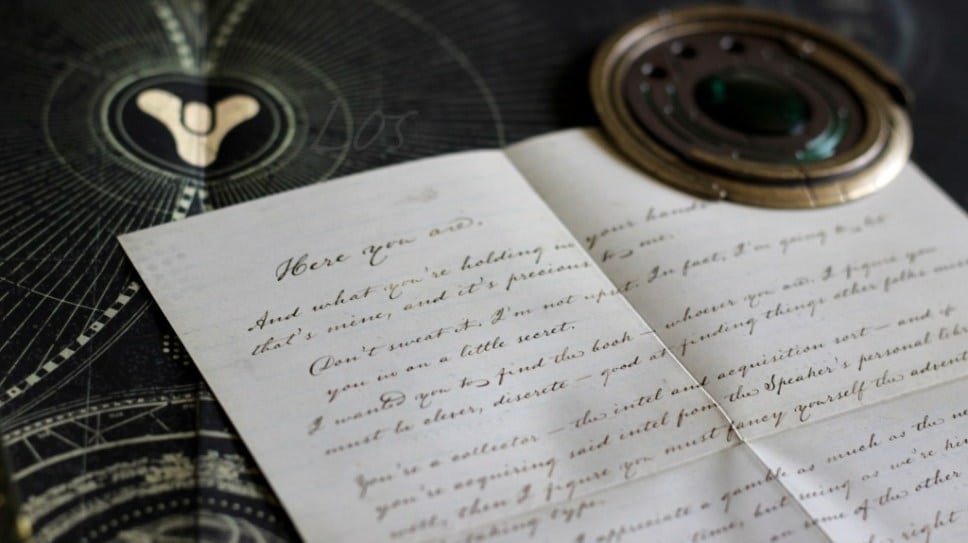 LOS
Here you are.
And what you're holding in your hands
that's mine, and it's precious to me.
Don't sweat it. I'm not upset. In fact, I'm going to let
you in on a little secret.
I wanted you to find the book — whoever you are. I figure you
must be clever, discrete — good at finding things other folks miss
You're a collector — the intel and acquisition sort — and if
you're acquiring said intel from the Speaker's personal libra
well, then I figure you must fancy yourself the advent
taking type.
I appreciate a gamble as much as the ne
time, but as we're
on some of the other
right